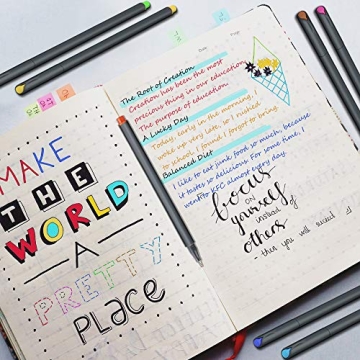 MAKE
THE
WORLD
A
PRETTY
PLACE
The Root of Creation
Creation has been the most
precious thing in our education
The purpose of education.
A Lucky Day
Today, early in the morning, I
woke up very late, so I rushed
to school, I found I forgot to bring.
Balanced Diet
I like to eat junk food so much, because
it tastes so delicious. For some time, I
went to KFC almost every day.
focus
on
yourself
instead of
others
then you will succeed